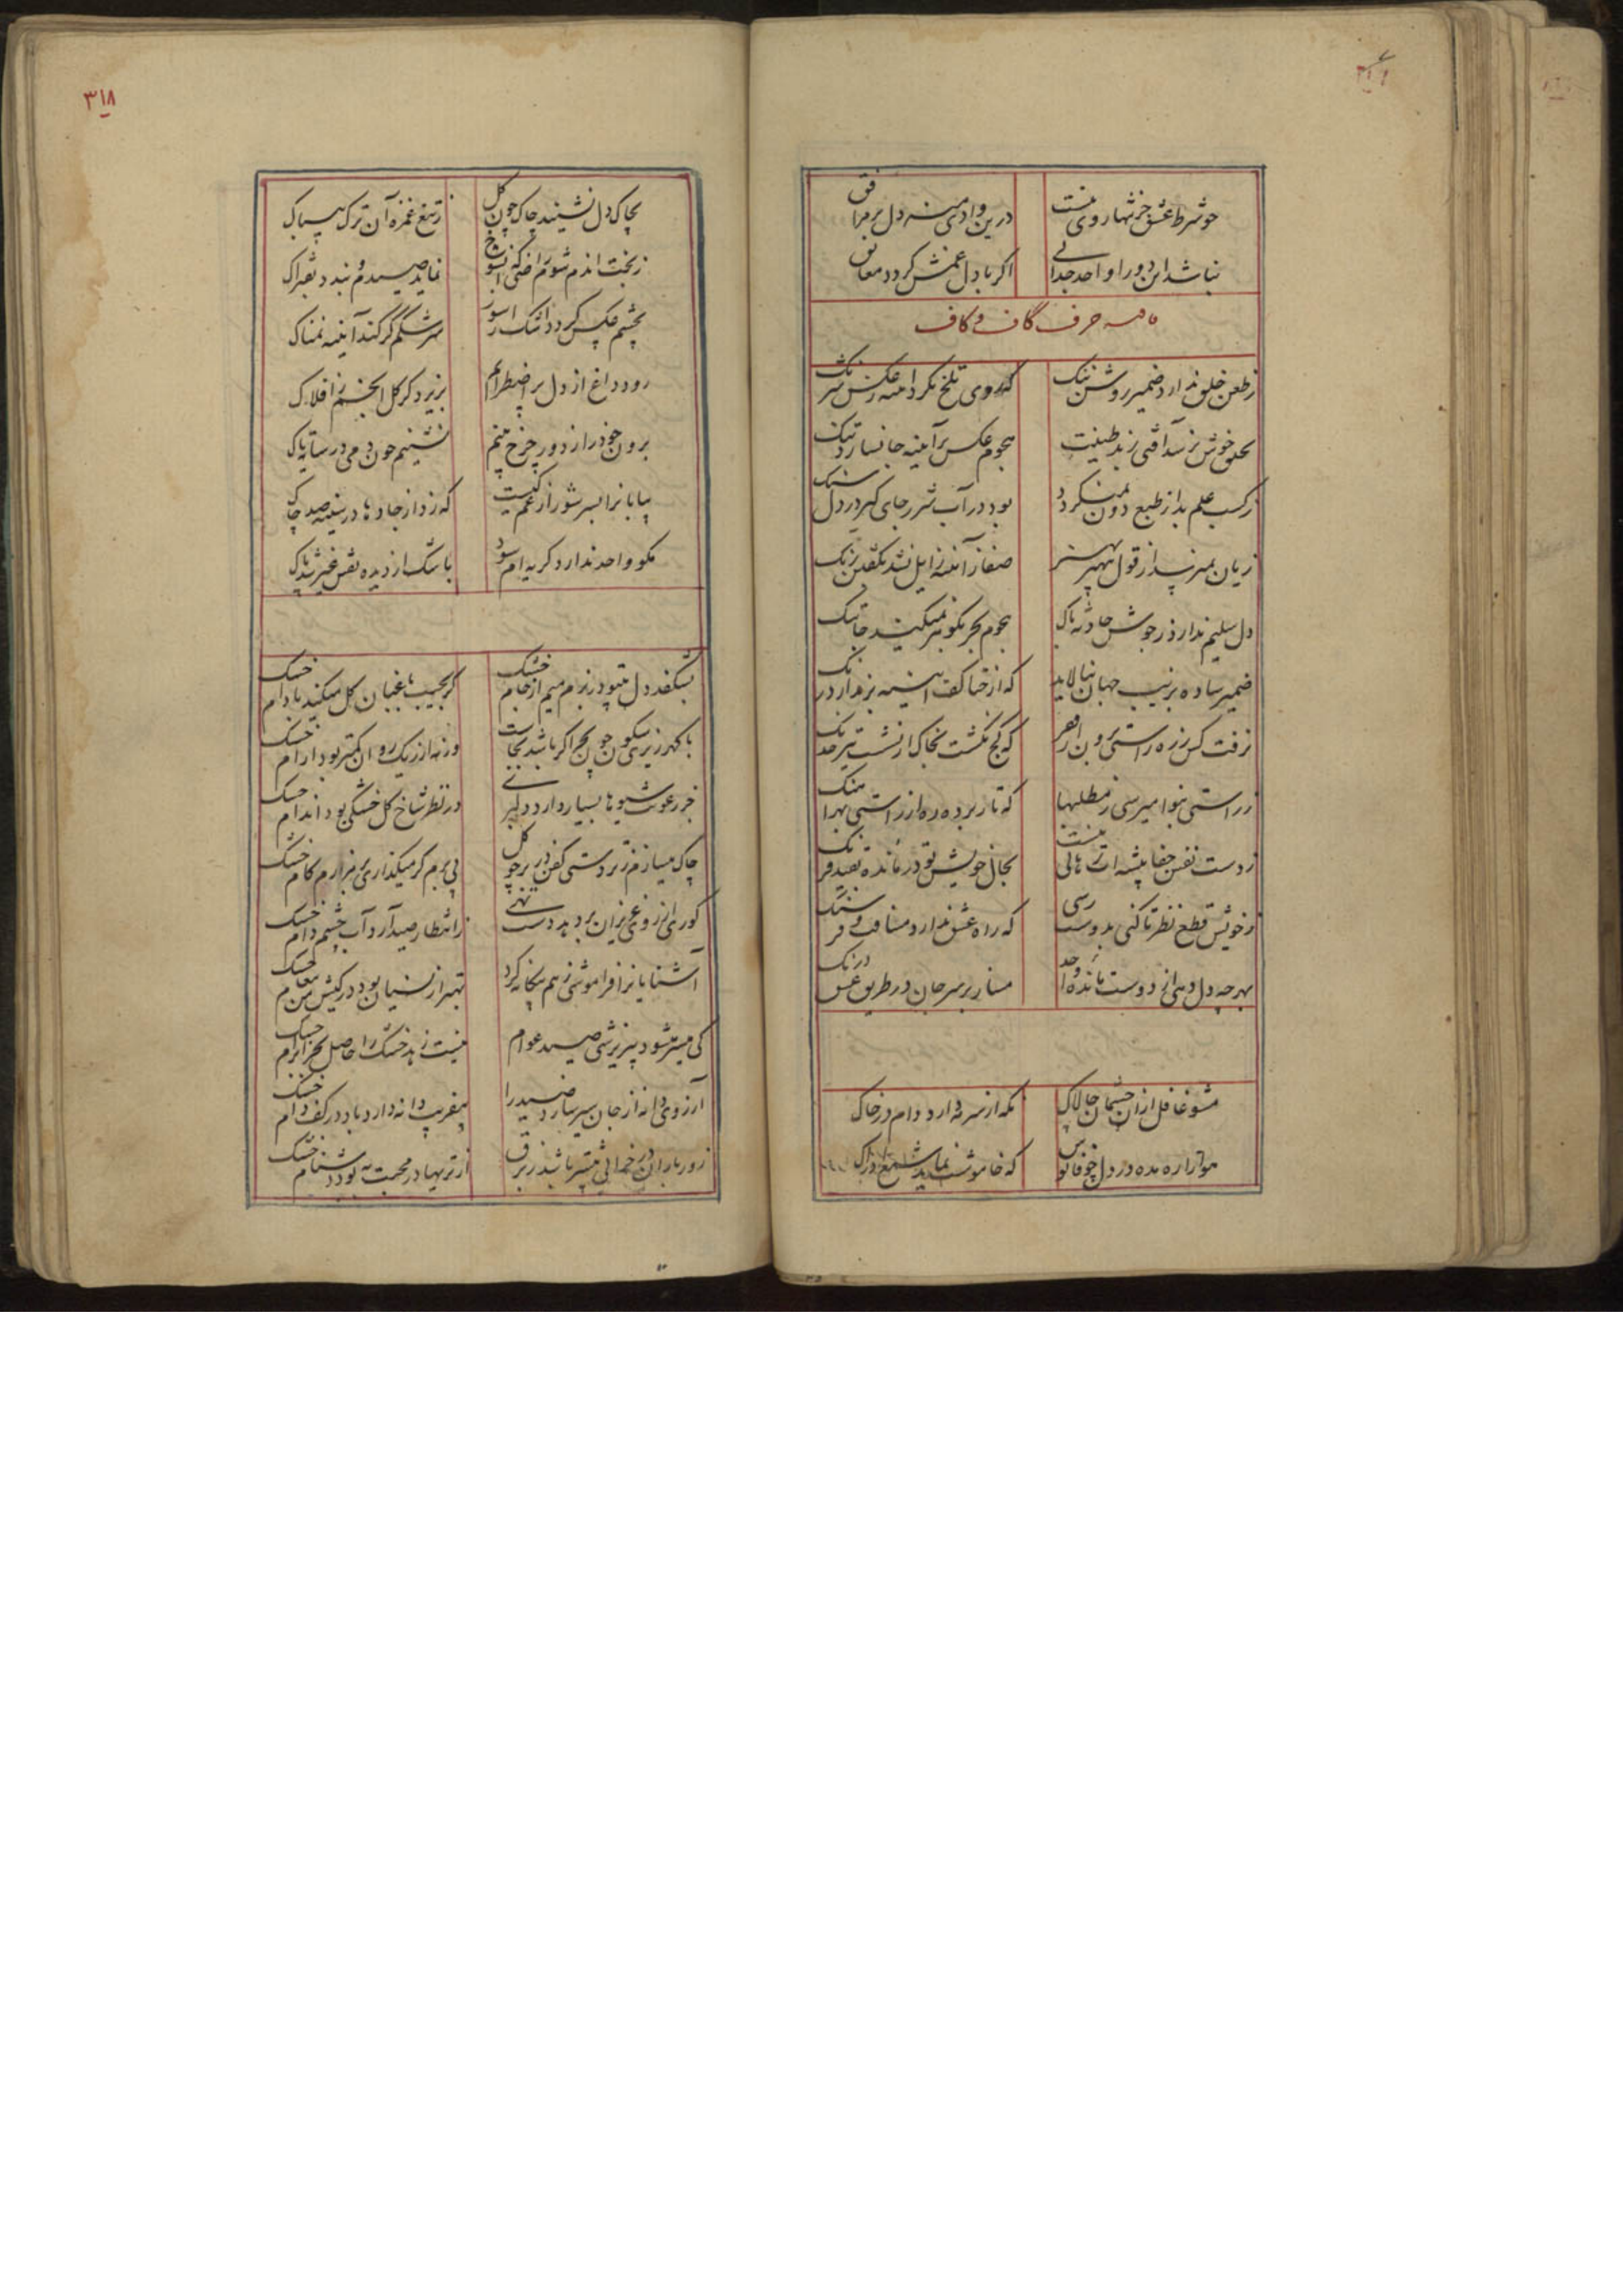 چو شرط عشق جز تنها روی نیست
درین وادی منه دل بر مرافق
نباشد این دو را واحد جدائی
اگر با دل غمش گردد معانق
حرف گاف و کاف
ز طعن خلق ندارد ضمیر روشن ننگ
که روی تلخ نگردد
بخلق خوش نرسد آفتی ز بد طینت
هجوم عکس بر آئینه جا نسازد تنگ
ز کسب علم بد از طبع دون نمیگردد
بود در آب شرر جای گیر در دل سنگ
زیان نمیرسد از قول
صفا ز آئنه زایل نشد بگفتن زنگ
دل سلیم ندارد ز جوش حادثه باک
هجوم بحر بگوهر نمیکند جا تنگ
ضمیر ساده بزیب جهان نیالاید
که از حنا کف آئینه بر ندارد رنگ
نرفت کس ز ره راستی برون
که کج نگشت بخاک ار نشست تیر خدنگ
ز راستی بنوا میرسی ز مطلبها
که تار برده ره از راستی بهر آهنگ
ز دست نفس جفا پیشه ات رهائی نیست
بحال خویش تو درمانده بقید فرنگ
ز خویش قطع نظر تا کنی بدوست رسی
که راه عشق ندارد مسافت و فرسنگ
بهر چه دل دهی از دوست مانده واحد
مساز بر سر جان در طریق عشق درنگ
مشو غافل ازان چشمان چالاک
که از سرمه دارد دام در خاک
هوا را ره مده در دل چو فانوس
که خاموشت نماید شمع ادراک
۳۱۸
بچاک دل نشیند چاک چون گل
ز تیغ غمزه آن ترک بیباک
ز بخت اندم شوم راضی که آن شوخ
نماید صیدم و بندد بفتراک
بچشم عکس گردد اشک ریز
سرشکم گر کند آئینه نمناک
رود داغ از دل پر اضطرابم
بریزد گر گل انجم ز افلاک
برون خود را ز دور چرخ بینم
نشینم چون دمی در سایه تاک
بیابانرا بسر شور از غم کیست
که زد از جادها در سینه صد چاک
مگو واحد ندارد گریه ام سود
باشک از دیده نقش غیر شد پاک
نشکفد دل بیتو در بزم میم از جام خشک
گر بجیب باغبان گل میکند بادام خشک
با گهر ریزی سکون چون بحر اگر باشد بجاست
ورنه از ریگ روان کمتر بود آرام خشک
جز رعونت شیوها بسیار دارد دلبری
در نظر شاخ گل خشکی بود اندام خشک
چاک میسازم ز تردستی کفن در بر چو گل
پی برم گر میگذاری بر مزارم گام خشک
کوری از روی عزیزان برد بد دست تهی
ز انتظار صید آرد آب چشم دام خشک
آشنایانرا فراموشی ز هم بیگانه کرد
بهتر از نسیان بود در کیش من پیغام خشک
کی میسر میشود بیریزشی صید عوام
نیست زهد خشک را حاصل بجز ابرام خشک
آرزوی دانه از جان سیر سازد صید را
بیفریب دانه دارد باد در کف دام خشک
زور باران در خرابی بیشتر باشد ز برق
از تریها در محبت به بود دشنام خشک